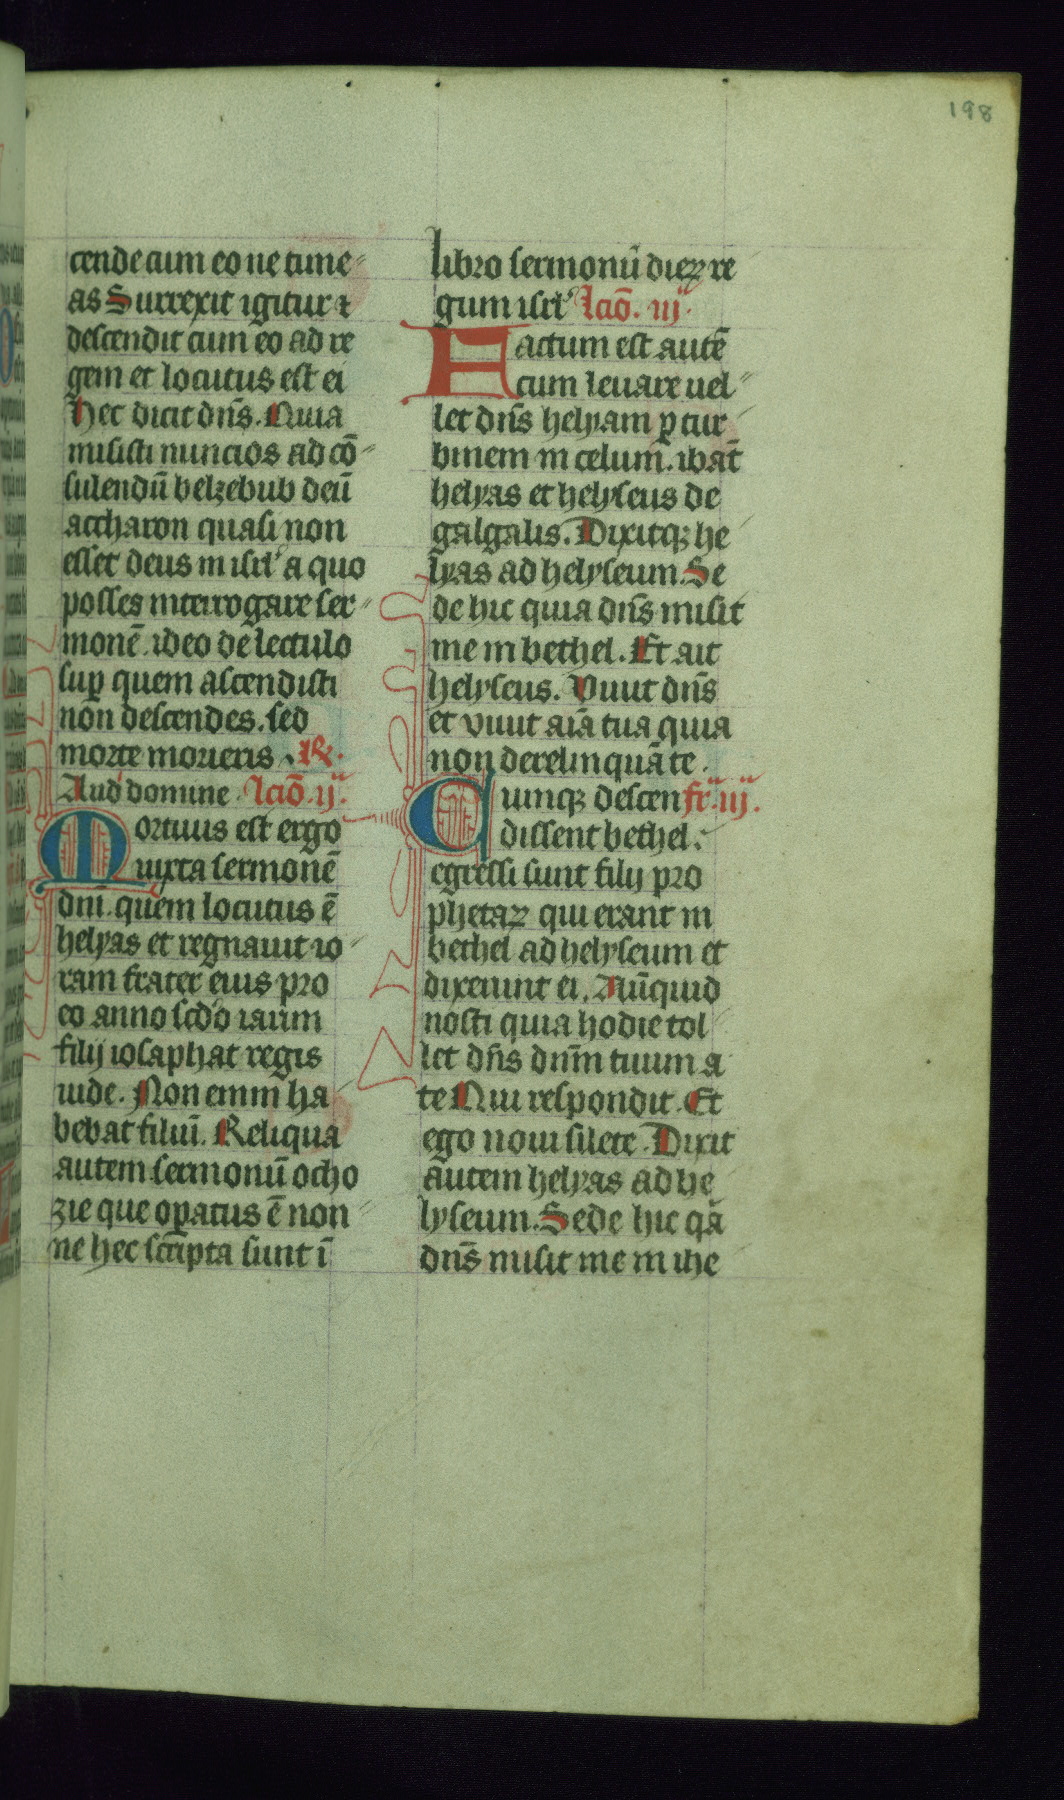 198
cende cum eo ne time
as Surrexit igitur ⁊
descendit cum eo ad re
gem et locutus est ei
Hec dicit dn̄s. Quia
misisti nuncios ad cō
sulendū belzebub deū
accharon quasi non
esset deus in isrl' a quo
posses interrogare ser
monē. ideo de lectulo
suꝑ quem ascendisti
non descendes. sed
morte morieris. R̷.
Aud domine. Lc̄iō. ij.
Mortuus est ergo
iuxta sermonē
dnī. quem locutus ē
helyas et regnauit io
ram frater eius pro
eo anno scd'o iaram
filij iosaphat regis
iude. Non enim ha
bebat filiū. Reliqua
autem sermonū ocho
zie que oꝑatus ē non
ne hec sc̄ripta sunt ī
libro sermonū dieꝝ re
gum isrl' Lc̄iō. iij.
Factum est autē
cum leuare uel
let dn̄s helyam ꝑ tur
binem in celum. ibāt
helyas et helyseus de
galgalis. Dixitqꝫ he
lyas ad helyseum. Se
de hic quia dn̄s misit
me in bethel. Et ait
helyseus. Viuit dn̄s
et viuit aīa tua quia
non derelinquā te.
Cumqꝫ descen fr̄. iij.
dissent bethel.
egressi sunt filij pro
phetaꝝ qui erant in
bethel ad helyseum et
dixerunt ei. Nūnquid
nosti quia hodie tol
let dn̄s dnm̄ tuum a
te Qui respondit. Et
ego noui silete. Dixit
autem helyas ad he
lyseum. Sede hic qa
dn̄s misit me in ihe